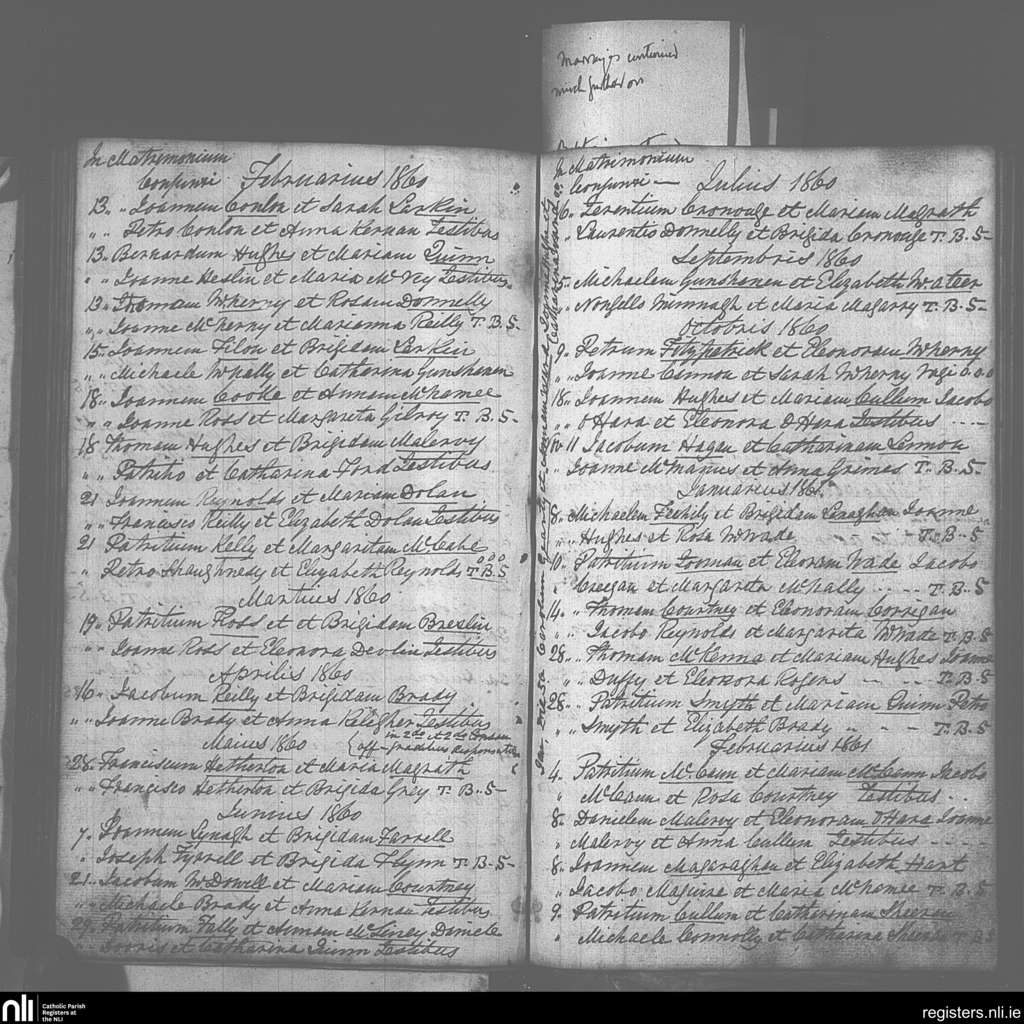 Marriages continued
much further on
In Matrimonium
Conjunxi Februarius 1860
13. „ Joannem Conlon et Sarah Larkin
„ „ Petro Conlon et Anna Kernan Testibus
13. Bernardum Hughes et Mariam Quinn
„ „ Joanne Heslin et Maria McVey Testibus
13 Thomam McHerny et Rosam Donnelly
„ „ Joanne McHerny et Marianna Reilly T. B. S-
15. Joannem Filon et Brigidam Larkin
„ „ Michaele McNally et Catharina Gunshanan
18. „ Joannem Cooke et Annam McNamee
„ „ Joanne Ross et Margareta Gilroy T. B. S-
18 Thomam Hughes et Brigidam Malervy
„ „ Patritio et Catharina Ford Testibus
21 Joannem Reynolds et Mariam Dolan
„ „ Francisco Reilly et Elizabeth Dolan Testibus
21 Patritium Kelly et Margaritam McCabe
„ Petro Shaughnedy et Elizabeth Reynolds T. B. S
Martius 1860
19 „ Patritium Ross et et Brigidam Breslin
„ „ Joanne Ross et Eleonora Devlin Testibus
Aprilis 1860
16 „ Jacobum Reilly et Brigidam Brady
„ „ Joanne Brady et Anna Kelegher Testibus
in 2do et 2do
Maius 1860
28. Franciscum Hetherton et Maria Magrath
„ „ Francisco Hetherton et Brigida Grey T. B. S-
Junius 1860
7. Joannem Lynagh et Brigidam Farrell
„ Joseph Tyrrell et Brigida Flynn T. B. S-
21. Jacobum McDowell et Mariam Courtney
„ „ Michaele Brady et Anna Kernan Testibus
29. Patritium Fally et Annam Daniele
et Catharina Quinn Testibus
In Matrimonium
Conjunxi — Julius 1860
16. Terentium Cronouge et Mariam Magrath
„ Laurentio Donnelly et Brigida Cronouge T. B. S-
Septembris 1860
5. Michaelem Gunshanan et Elizabeth Water
„ Minnagh et Maria Magarry T. B. S-
Octobris 1860
9. Petrum Fitzpatrick et Eleonoram McHerny
„ „ Joanne Cannon et Sarah McHerny
18. „ Joannem Hughes et Mariam Cullum Jacobo
„ „ O Hara et Eleonora O Hara Testibus
Jacobum Hagan et Catharinam Lennon
„ Joanne McManus et Anna Grimes T. B. S-
Januarius 1861
8. Michaelem Feehily et Brigidam Joanne
„ Hughes et Rosa McWade T. B. S
10. Patritium et Eleoram Wade Jacobo
Creegan et Margarita McNally T. B. S
14. „ Thomam Courtney et Eleonoram Corrigan
„ „ Jacobo Reynolds et Margarita McWade T. B. S
28. „ Thomam McKenna et Mariam Hughes Joanne
„ „ Duffy et Eleonora Rogers T. B. S
28. „ Patritium Smyth et Mariam Quinn Petro
„ „ Smyth et Elizabeth Brady T. B. S
Februarius 1861
4. Patritium McCann et Mariam McCann Jacobo
„ McCann et Rosa Courtney Testibus
8. Danielem Malervy et Eleonoram O Hara Joanne
„ Malervy et Anna Cullum Testibus
8. Joannem Magaraghan et Elizabeth Hart
„ Jacobo Maguire et Maria McNamee T. B. S
9. Patritium Cullum et Catharinam
„ Michaele Connolly et Catharina
nli
Catholic Parish
Registers at
the NLI
registers.nli.ie